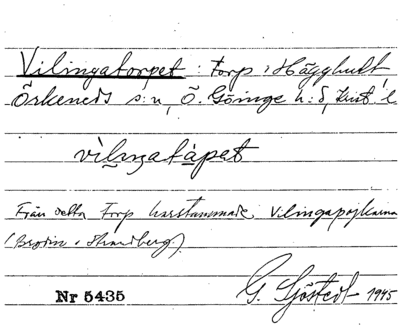 Vilingatorpet : Torp i Hägghult
Örkeneds s:n, Ö. Göinge h:d, Krist. l.
vìlıŋatápət
Från detta Torp härstammade Vilingapojkarna
(Brodin i Strandberg.)
Nr 5435 G. Sjöstedt 1945